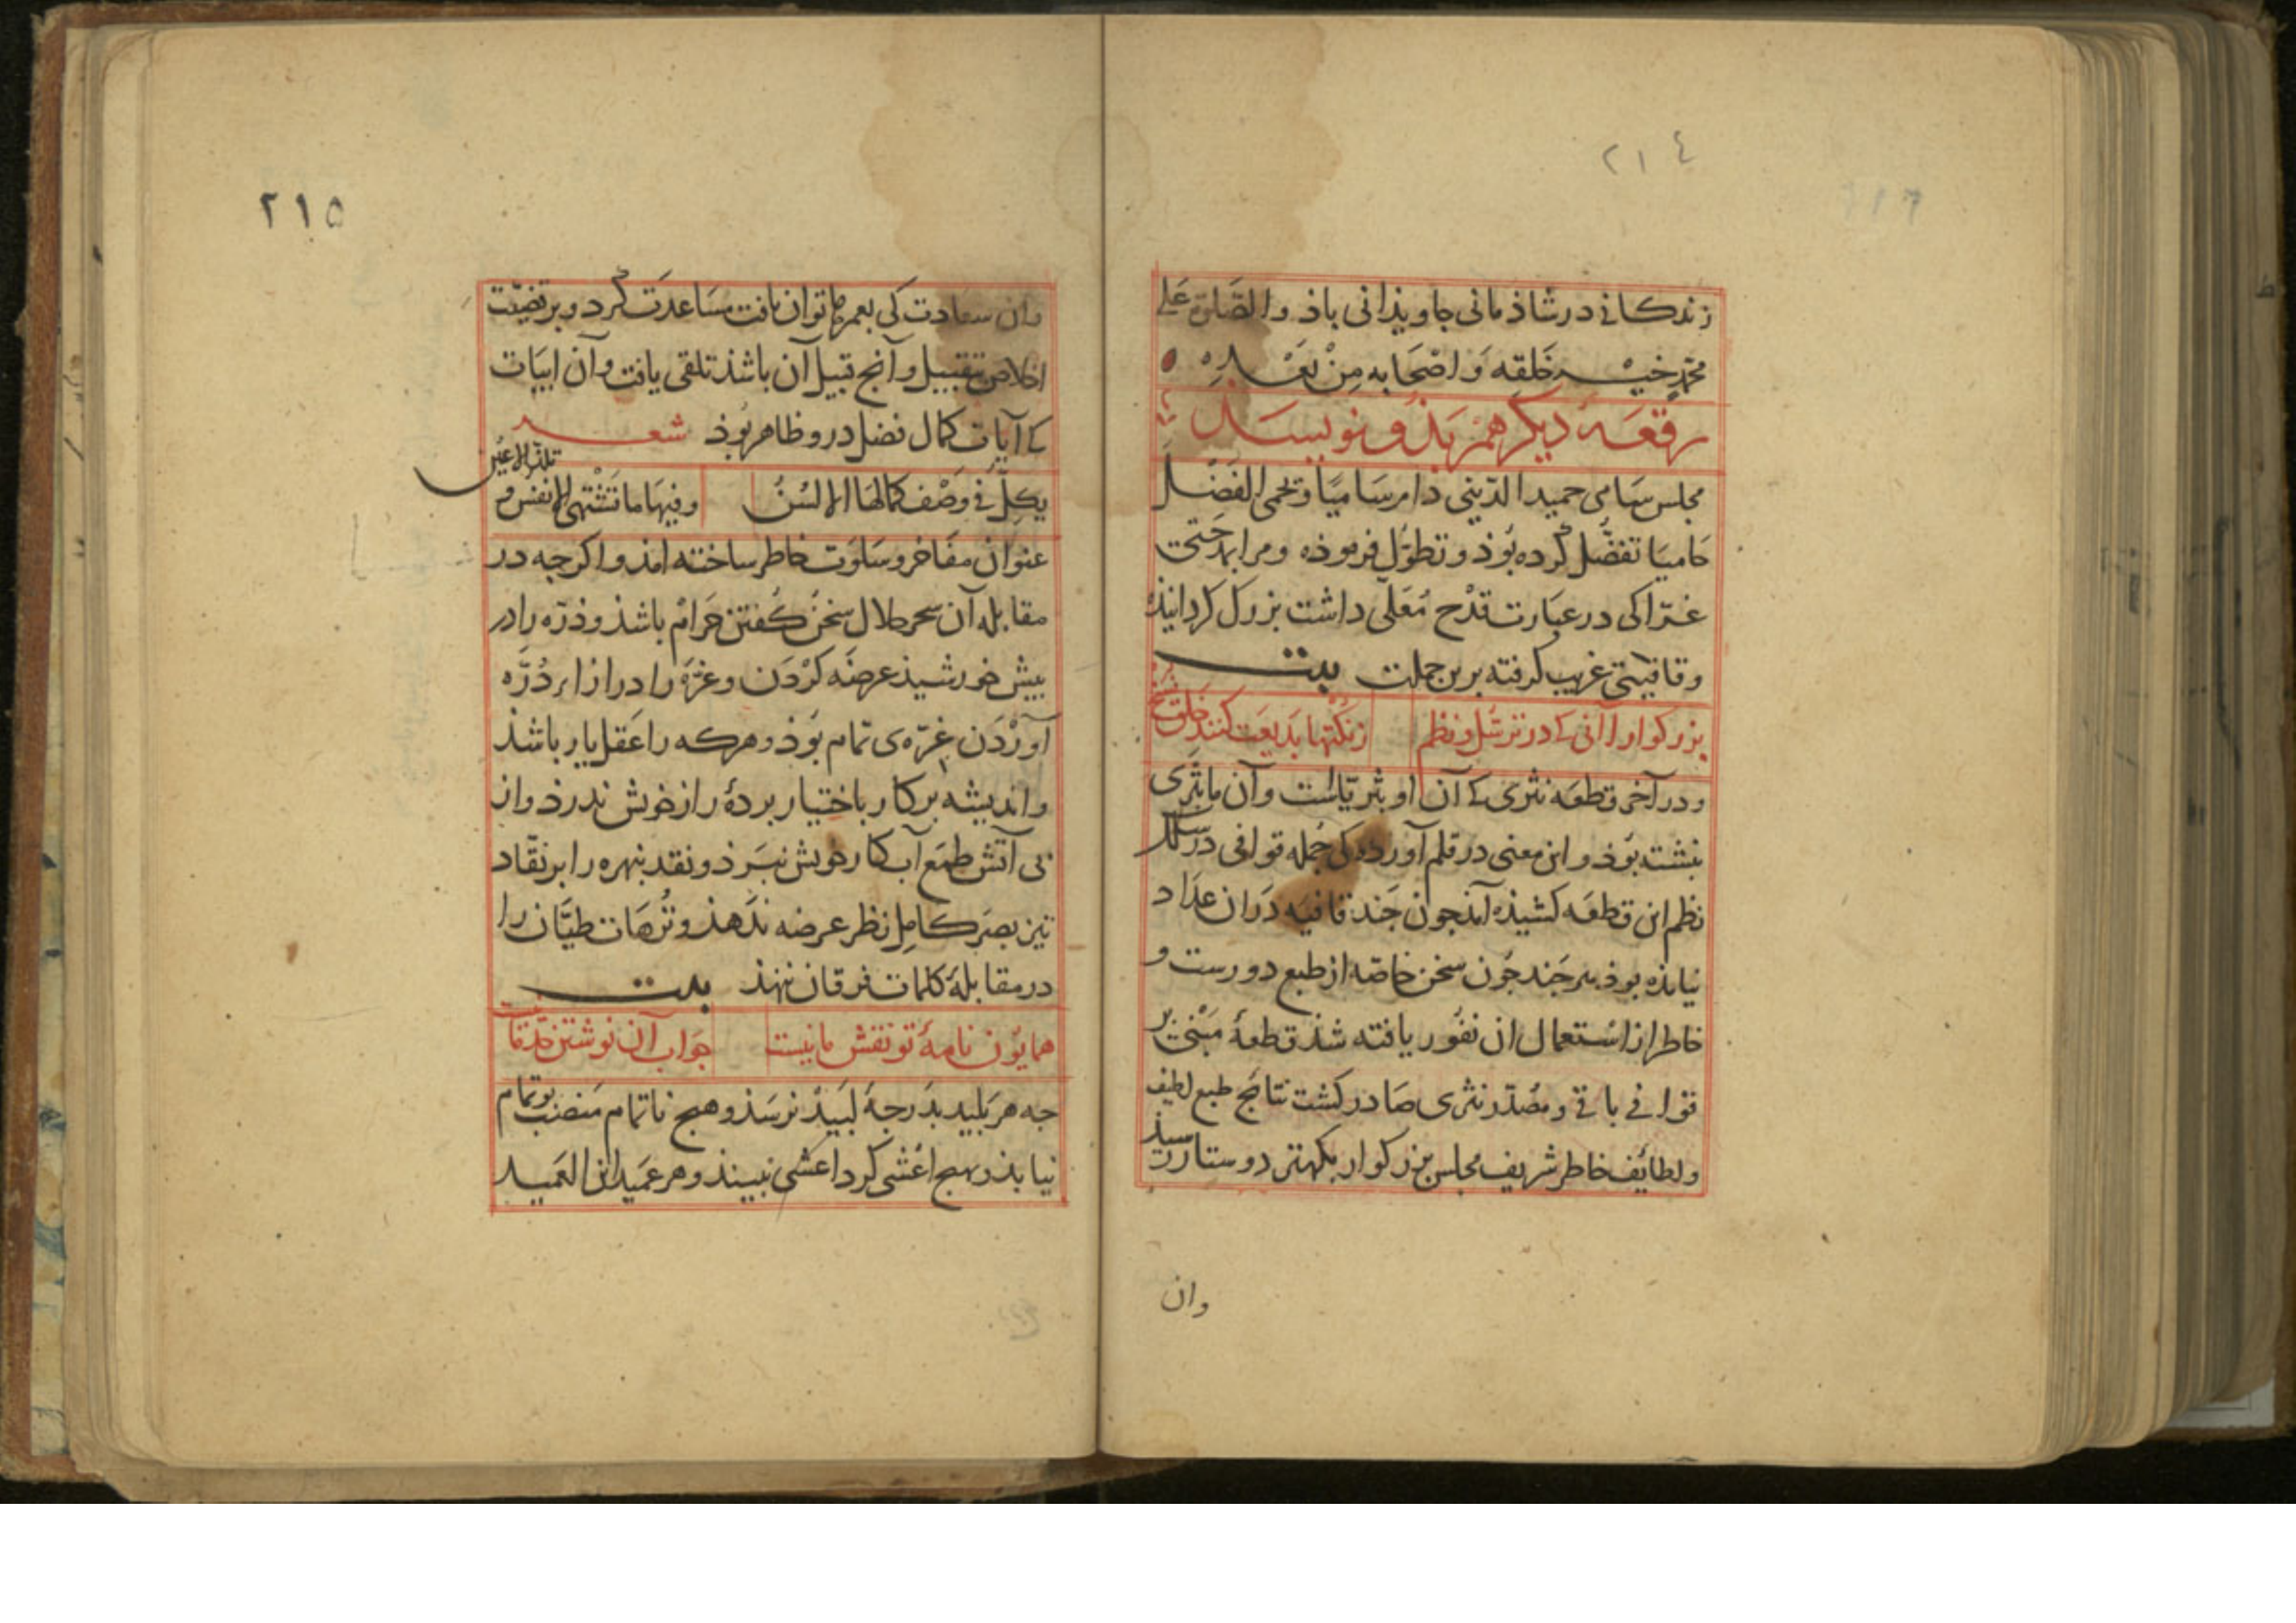 ٢١٤
زندكانى در شاذمانى جاويذانى باذ والصلوة على
محمد خير خلقه واصحابه من بعده
رقعه ديكر هم بذو نويسد
مجلس سامى حميد الدينى دام ساميا ولحمى الفضل
حاميا تفضل كرده بوذ و تطول فرموذه ومرا بمدحتى
غرّا كى در عبارت قدح معلى داشت بزرك كردانيذه
وقافيتى غريب كرفته برين جملت بيت
بزركوارا آنى كه در ترسل و نظم
زنكتها بديعت كنند خلق
ودر آخر قطعه نثرى كه آن او بثرياست وآن ما بثرى
نبشته بوذ و اين معنى در قلم آورده كى جمله قوافى در سلك
نظم اين قطعه كشيذه آمذ جون جند قافيه در ان عداد
نيامذه بوذ هر جند جون سخن خاصه از طبع دورست و
خاطر از استعمال ان نفور يافته شذ قطعۀ مبنى بر
قوافى باقى ومصدّر نثرى صادر كشت نتايج طبع لطيف
ولطائف خاطر شريف مجلس بزركوار بكهتر دوستار رسيذ
وان
٢١٥
وان سعادت كى بعمرها توان يافت مساعدت كرد و بر قضيّت
اخلاص بتقبيل و آنج قبيل آن باشذ تلقى يافت وآن ابيات
كه آيات كمال فضل درو ظاهر بوذ شعر
يكلّ فى وصف كمالها الالسن
وفيها ما تشتهى الانفس و تلذ الاعين
عنوان مفاخر وسلوت خاطر ساخته امذ و اكرجه در
مقابله آن سحر حلال سخن كفتن حرام باشذ وذرّه را در
بيش خورشيذ عرضه كردن وغرّه را در ازاء درّه
آوردن غرّه‌ى تمام بوذ و هركه را عقل يار باشذ
وانديشه بر كار باختيار بردۀ راز خويش ندرذ واز
بى آتش طمع آب كار خويش نبرذ ونقد نبهره را بر نقّاد
تيز بصر كامل نظر عرضه ندهذ و ترّهات طيّان را
در مقابلۀ كلمات فرقان ننهذ بيت
همايون نامۀ تو نقش مانيست
جواب آن نوشتن خذقانيست
جه هر بليد بدرجۀ لبيد نرسذ و هيج ناتمام منصب بوتمام
نيابذ و هيج اعشى كرد اعشى نبينذ وهر عميد ابن العميد